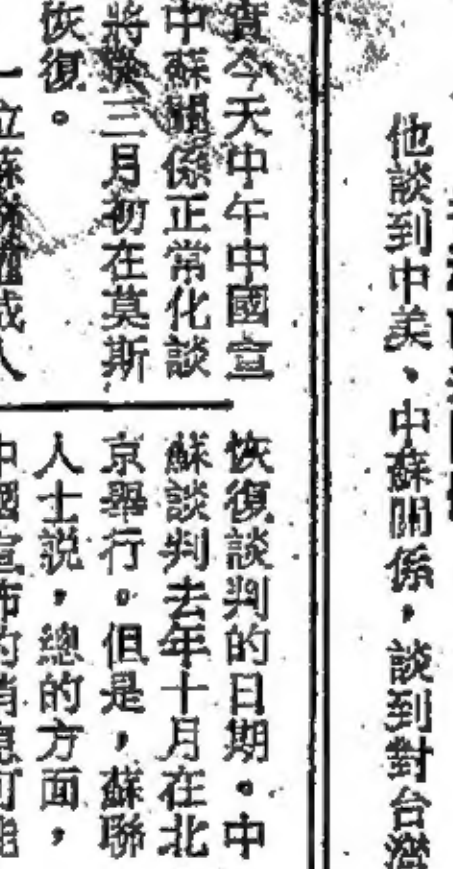 他談到中美、中蘇關係，談到對台灣
實今天中午中國宣
中蘇關係正常化談
將於三月初在莫斯
恢復。
恢復談判的日期。中
蘇談判去年十月在北
京舉行。但是，蘇聯
人士説，總的方面，
中國宣布的消息可能